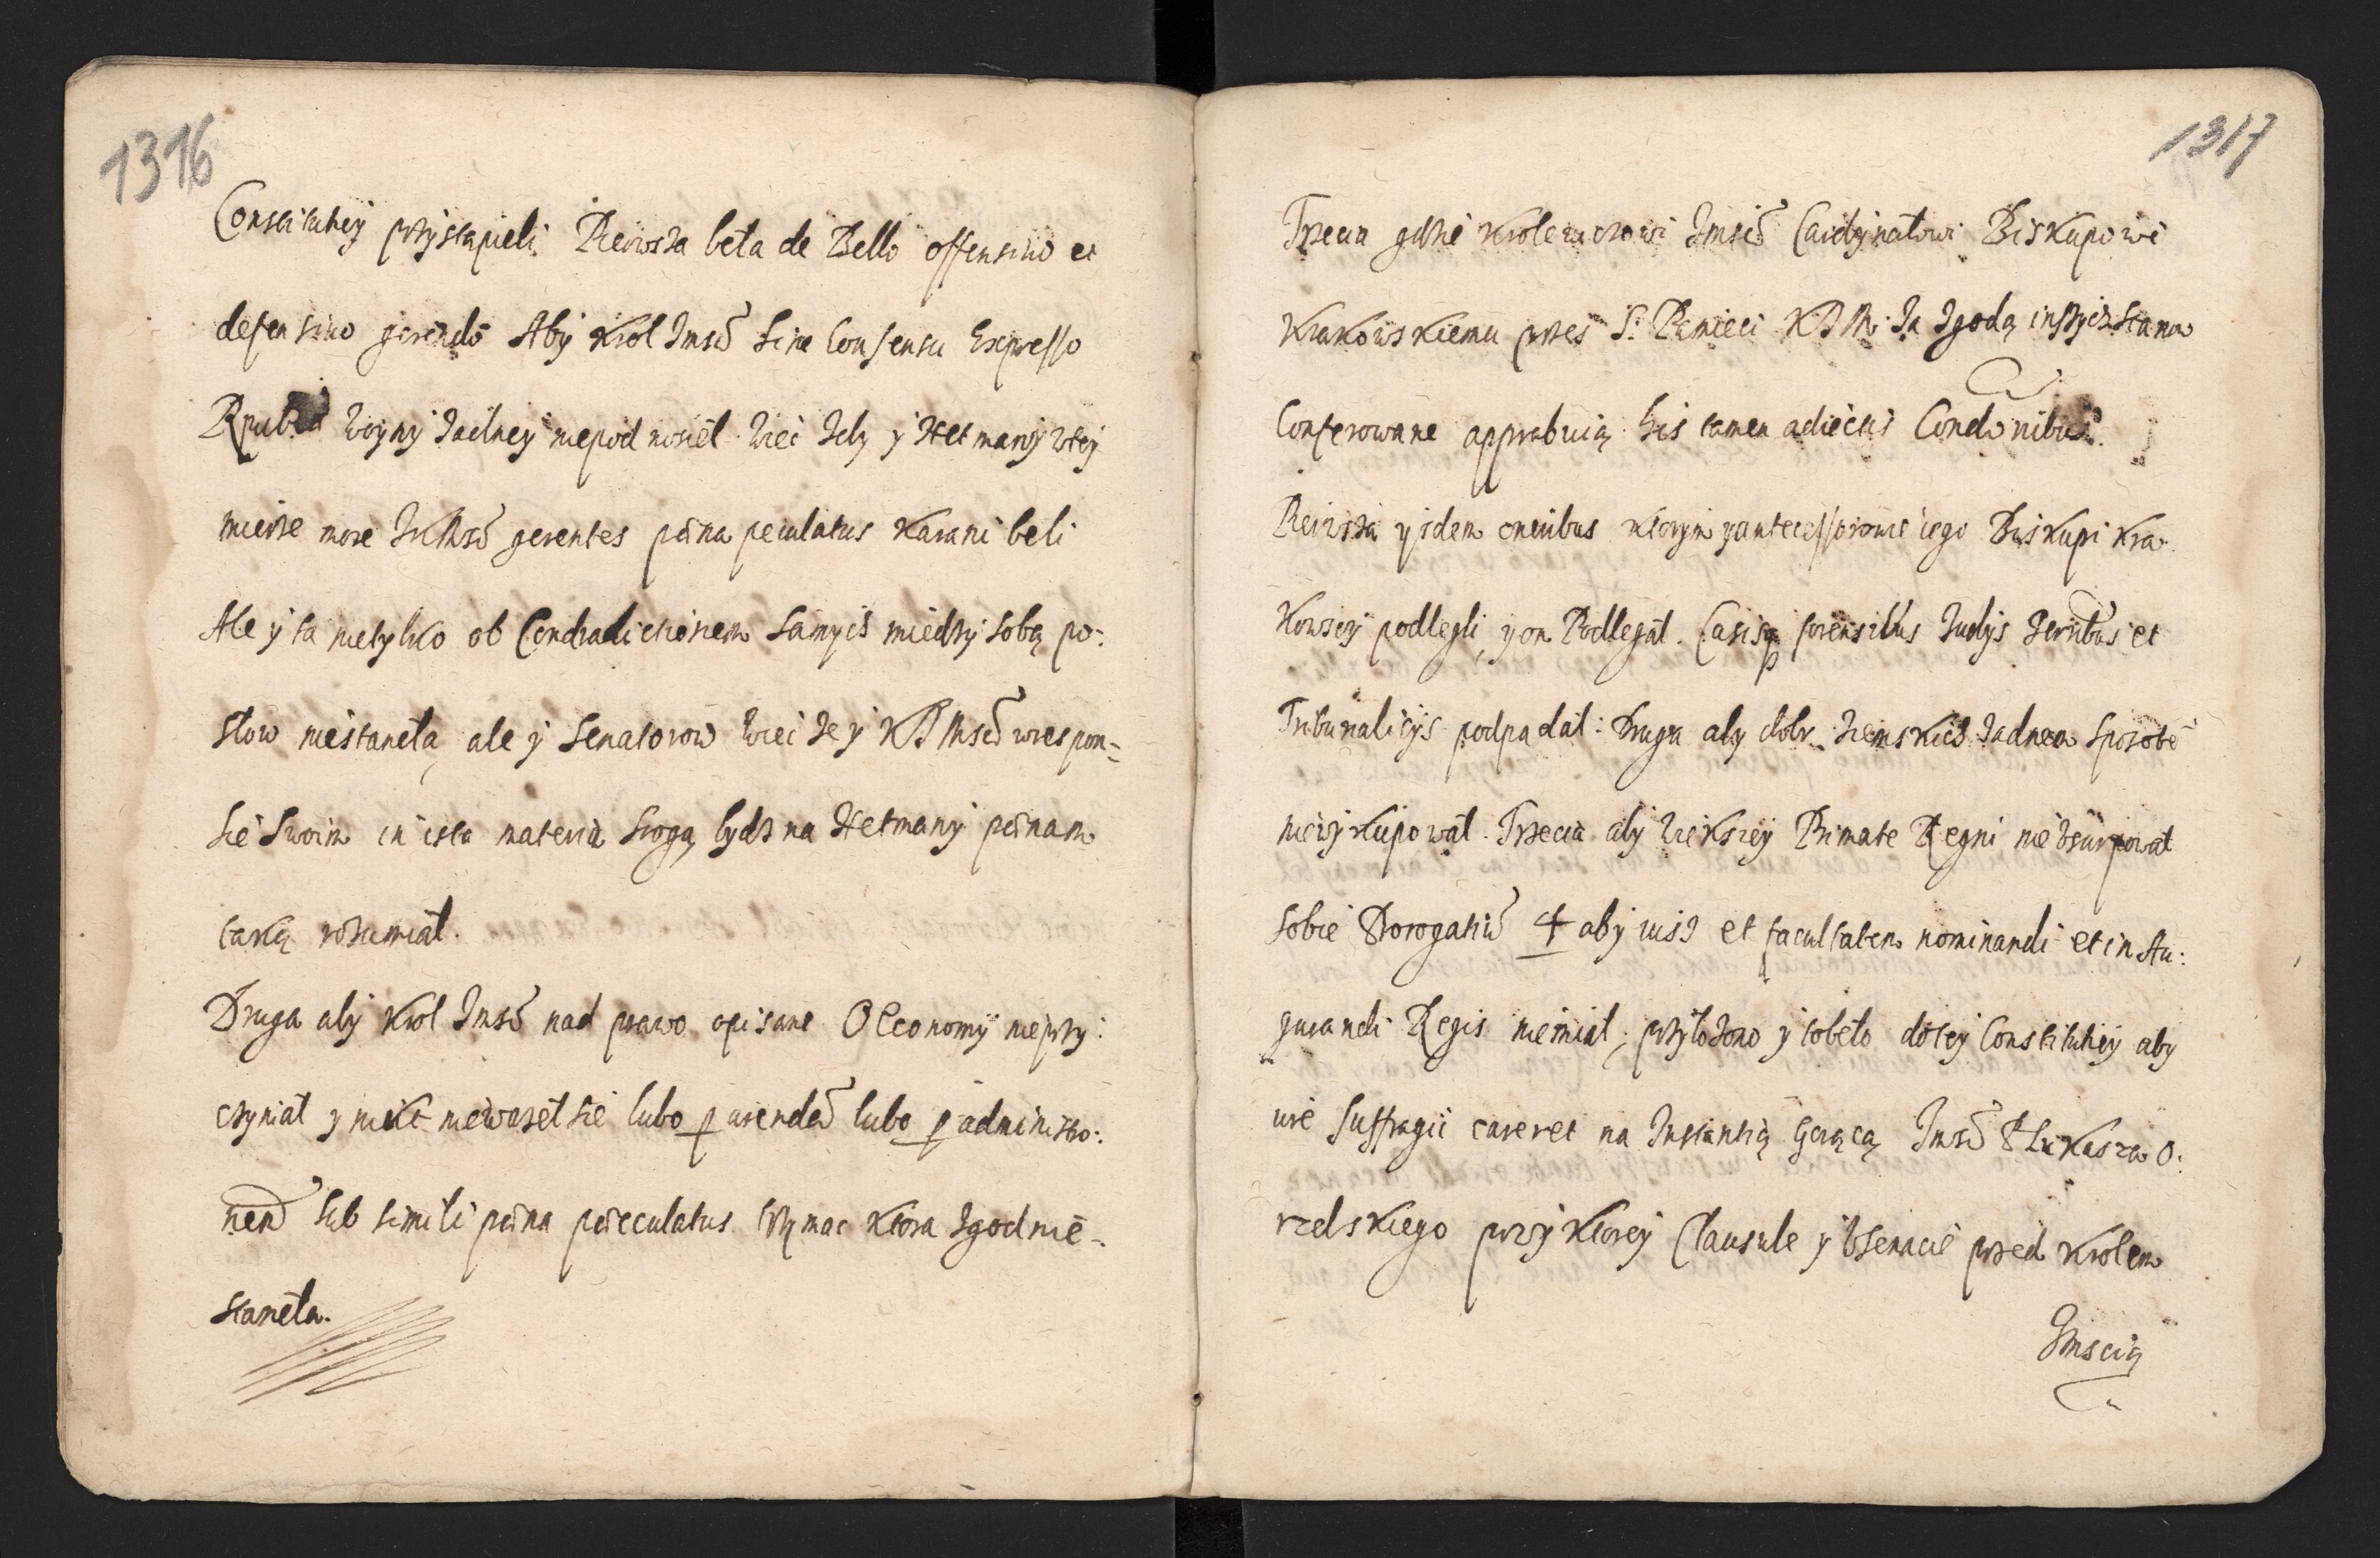 1316
Constitutiey przystąpieli Pierwsza beła de Bello offensiuo et
defensiuo gerendo Aby Krol Jmsc sine Consensu Expresso
Rpub. Woyny żadney niepodnosieł wiec żeby y Hetmany wtey
mierze more gerentes pœna peculatus karani beli
Ale y ta nietylko ob Contradictionem samych miedzy sobą po:
słow niestaneła, ale y Senatorow wiec że y KJMsc wrespon-
sie swoim in ista materia srogą bydz na Hetmany pœnam
taką rozumiał.
Druga aby Krol Jmsc nad prawo opisane OEconomy nieprzy:
czyniał y nikt niewazeł sie lubo p arendam lubo p administro:
nem sub simili pœna pœcculatus trzymac ktora zgodnie-
staneła.
1317
Trzecia gdzie Krolewiczowi Jmsci Cardynałowi Biskupowi
Krakowskiemu przes S. Pamieci KJM za zgodą inszych stanow
Conferowane approbuią his tamen adiectis Condonibus.
Pierwsza yisdem oneribus ktorym y antecessorowie iego Biskupi Kra
kowscy podlegli, y on Podlegał. Casisq forensibus Judys terribus et
Tribunalicys podpadał: Druga aby dobr ziemskich żadnem sposobe
niewykupował. Trzecia aby wiekszey Primate Regni nieusurpował
sobie Prorogatiw 4 aby ius et facultatem nominandi et in Au:
gurandi Regis niemiał, przyłożono y tobeło do tey Constitutiey aby
iure suffragii careret na Instantią Gorącą Jmsc P Łukasza O:
rzelskiego przy ktorey Clausule y w senacie przed Krolem
Jmscią